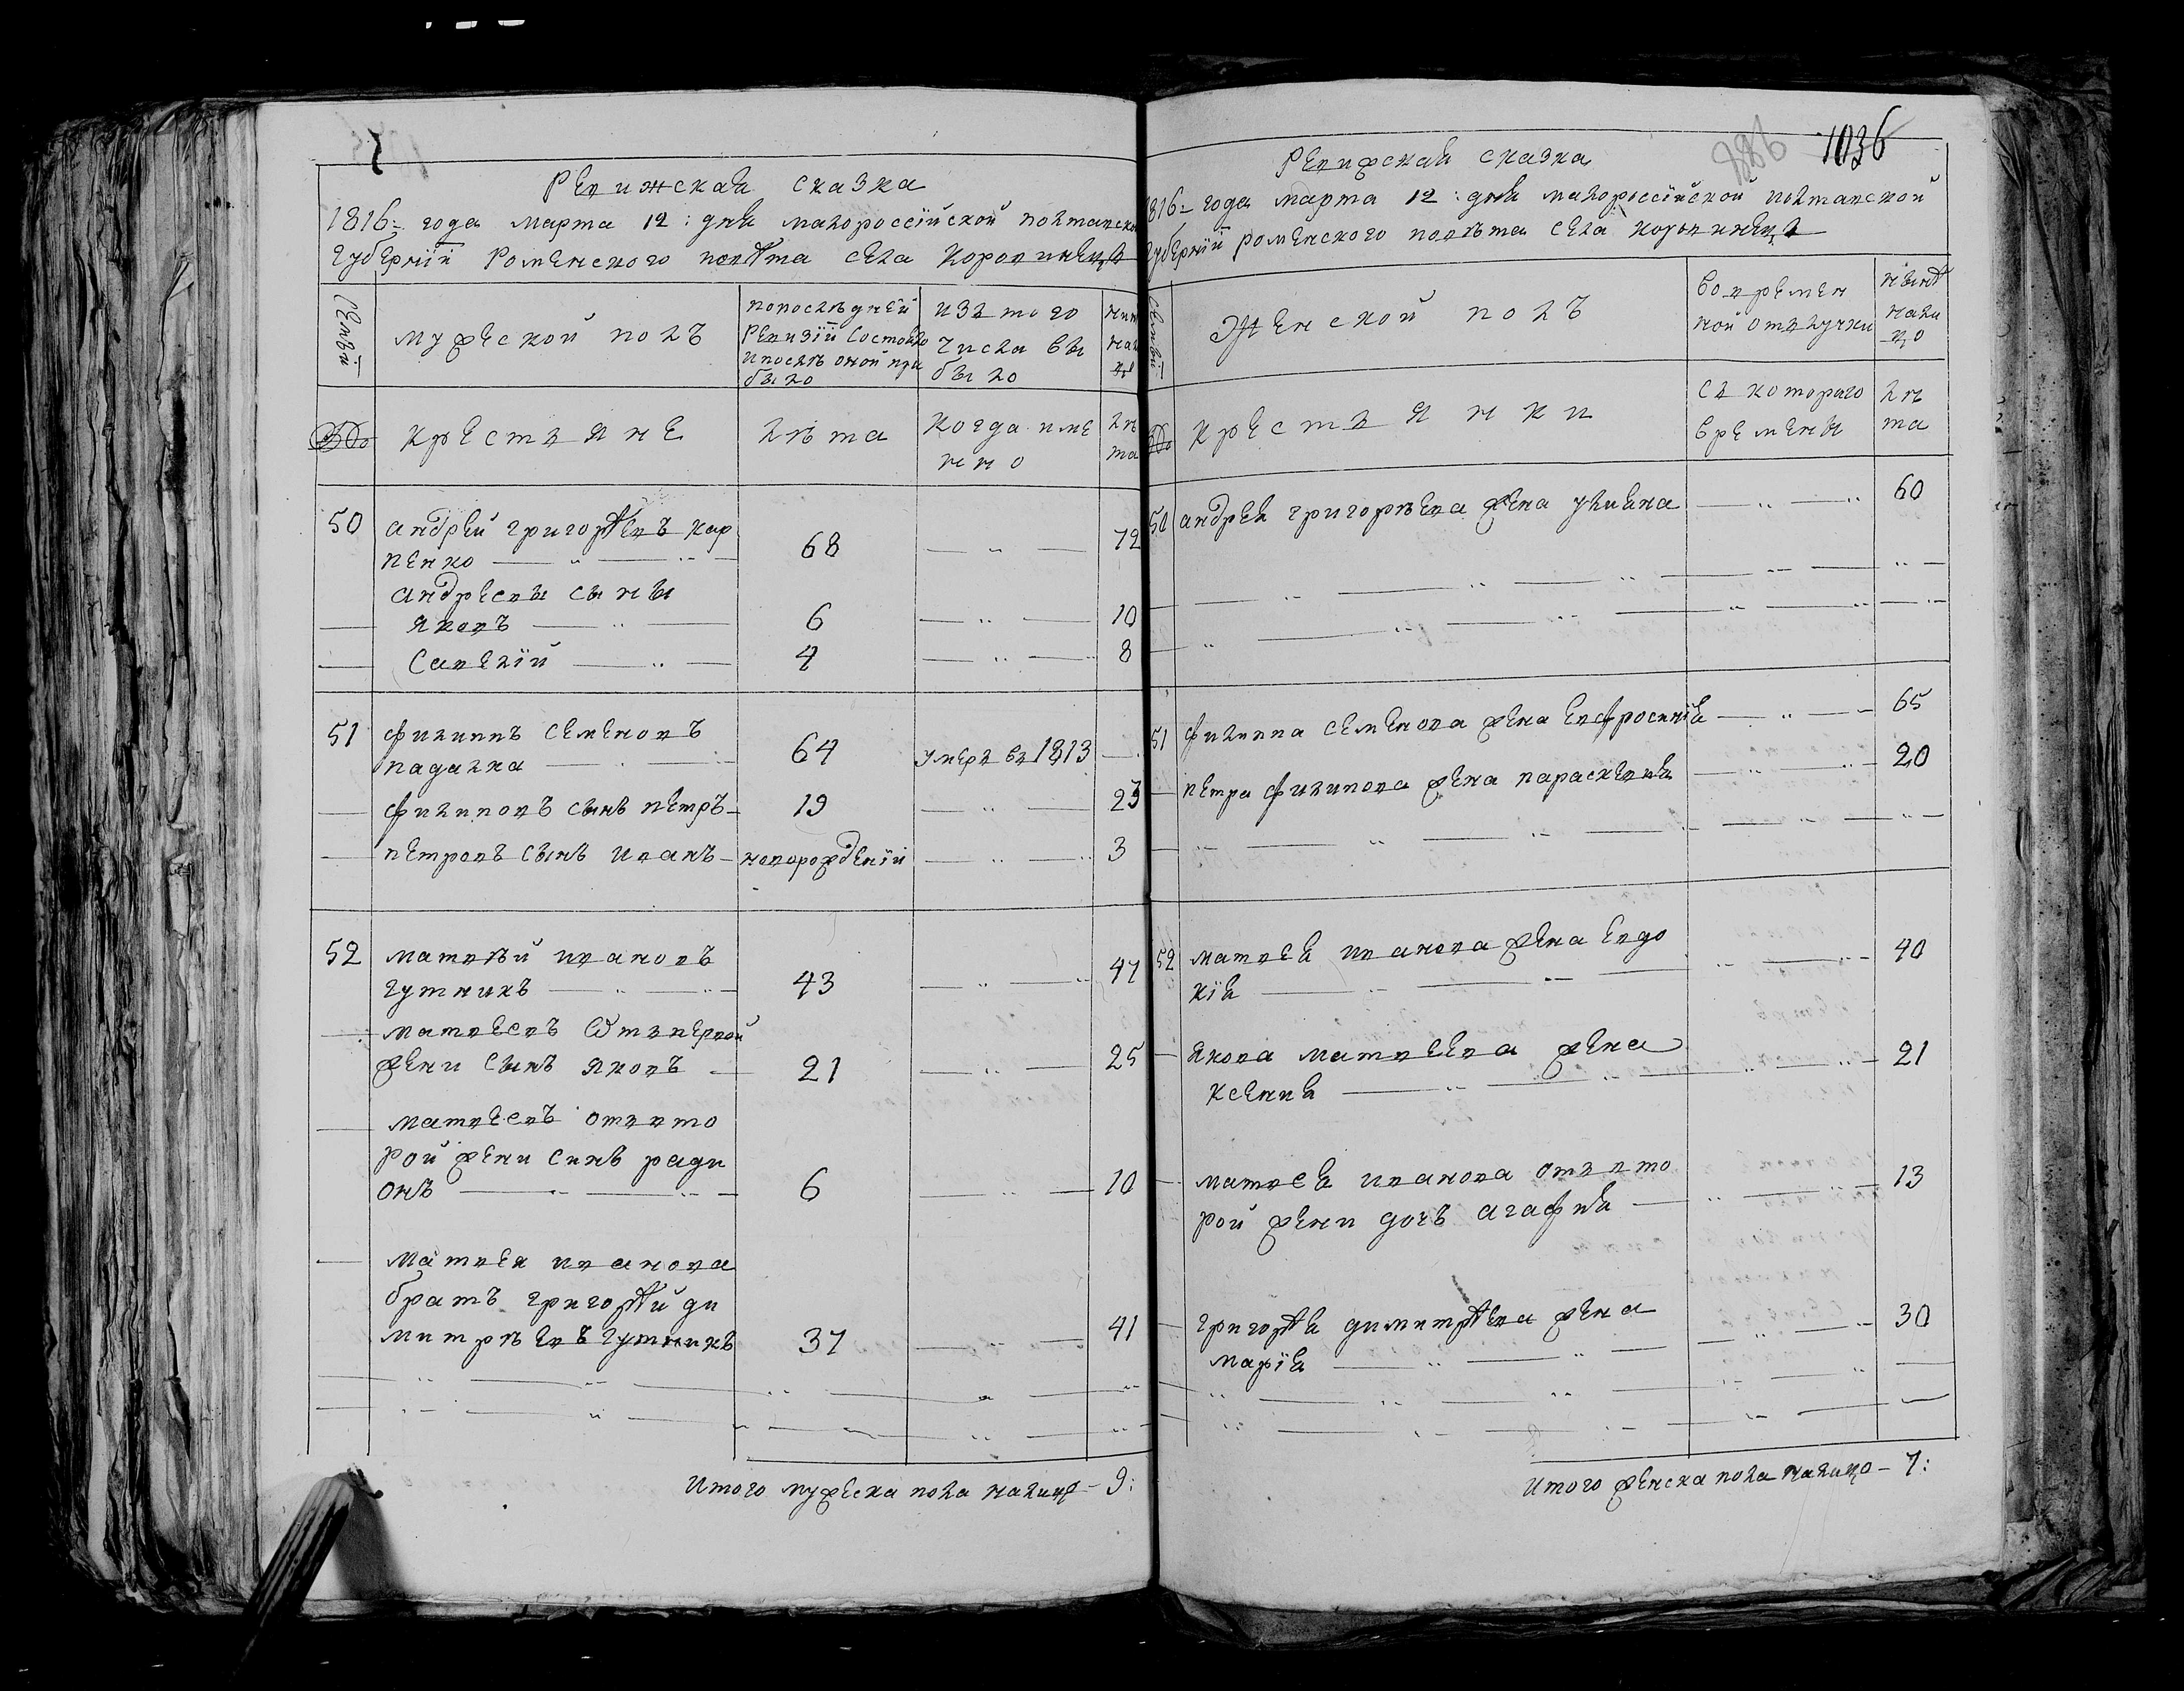 Ревижская сказка
1816= года марта 12: дня малороссїйской полтавской
губернїи Роменского повѣта села Коровинецъ
Семьи
мужеской полъ
попослѣдней
ревизїи состояло
и послѣ оной при
было
изъ того
числа вы
было
ныне
нали
цо
№
крестьяне
лѣта
когда име
нно
лѣ
та
50 андрей григорѣевъ кар
пенко 68 72
андреевы сыны
яковъ 6 10
савелїй 4 8
51 филиппъ семеновъ
падалка 64 умеръ въ 1813
филиповъ сынъ петръ 19 23
петровъ сынъ иванъ новорожденїй 3
52 матвѣй ивановъ
гутникъ 43 47
матвеевъ ѿ первой
жени сынъ яковъ 21 25
матвеевъ отъ вто
рой жени синъ ради
онъ 6 10
матвея иванова
братъ григорѣй ди
митрѣевъ гутникъ 37 41
Итого мужеска пола налицо - 9:
1036
886
Ревижская сказка
1816= года марта 12: дня малороссїйской полтавской
губернїи роменского повѣта села коровинецъ
Семьи
Женской полъ
во времен
ной отлучки
нынѣ
нали
цо
№
крестьянки
съ которого
времены
лѣ
та
50 андрея григорѣева жена улияна 60
51 филиппа семенова жена евфросинїя 65
петра филипова жена параскевия 20
52 матвея иванова жена евдо
кїя 40
якова матвеева жена
ксения 21
матвея иванова отъ вто
рой жени дочъ агафия 13
григорѣя димитрѣева жена
марїя 30
Итого женска пола налицо - 7: